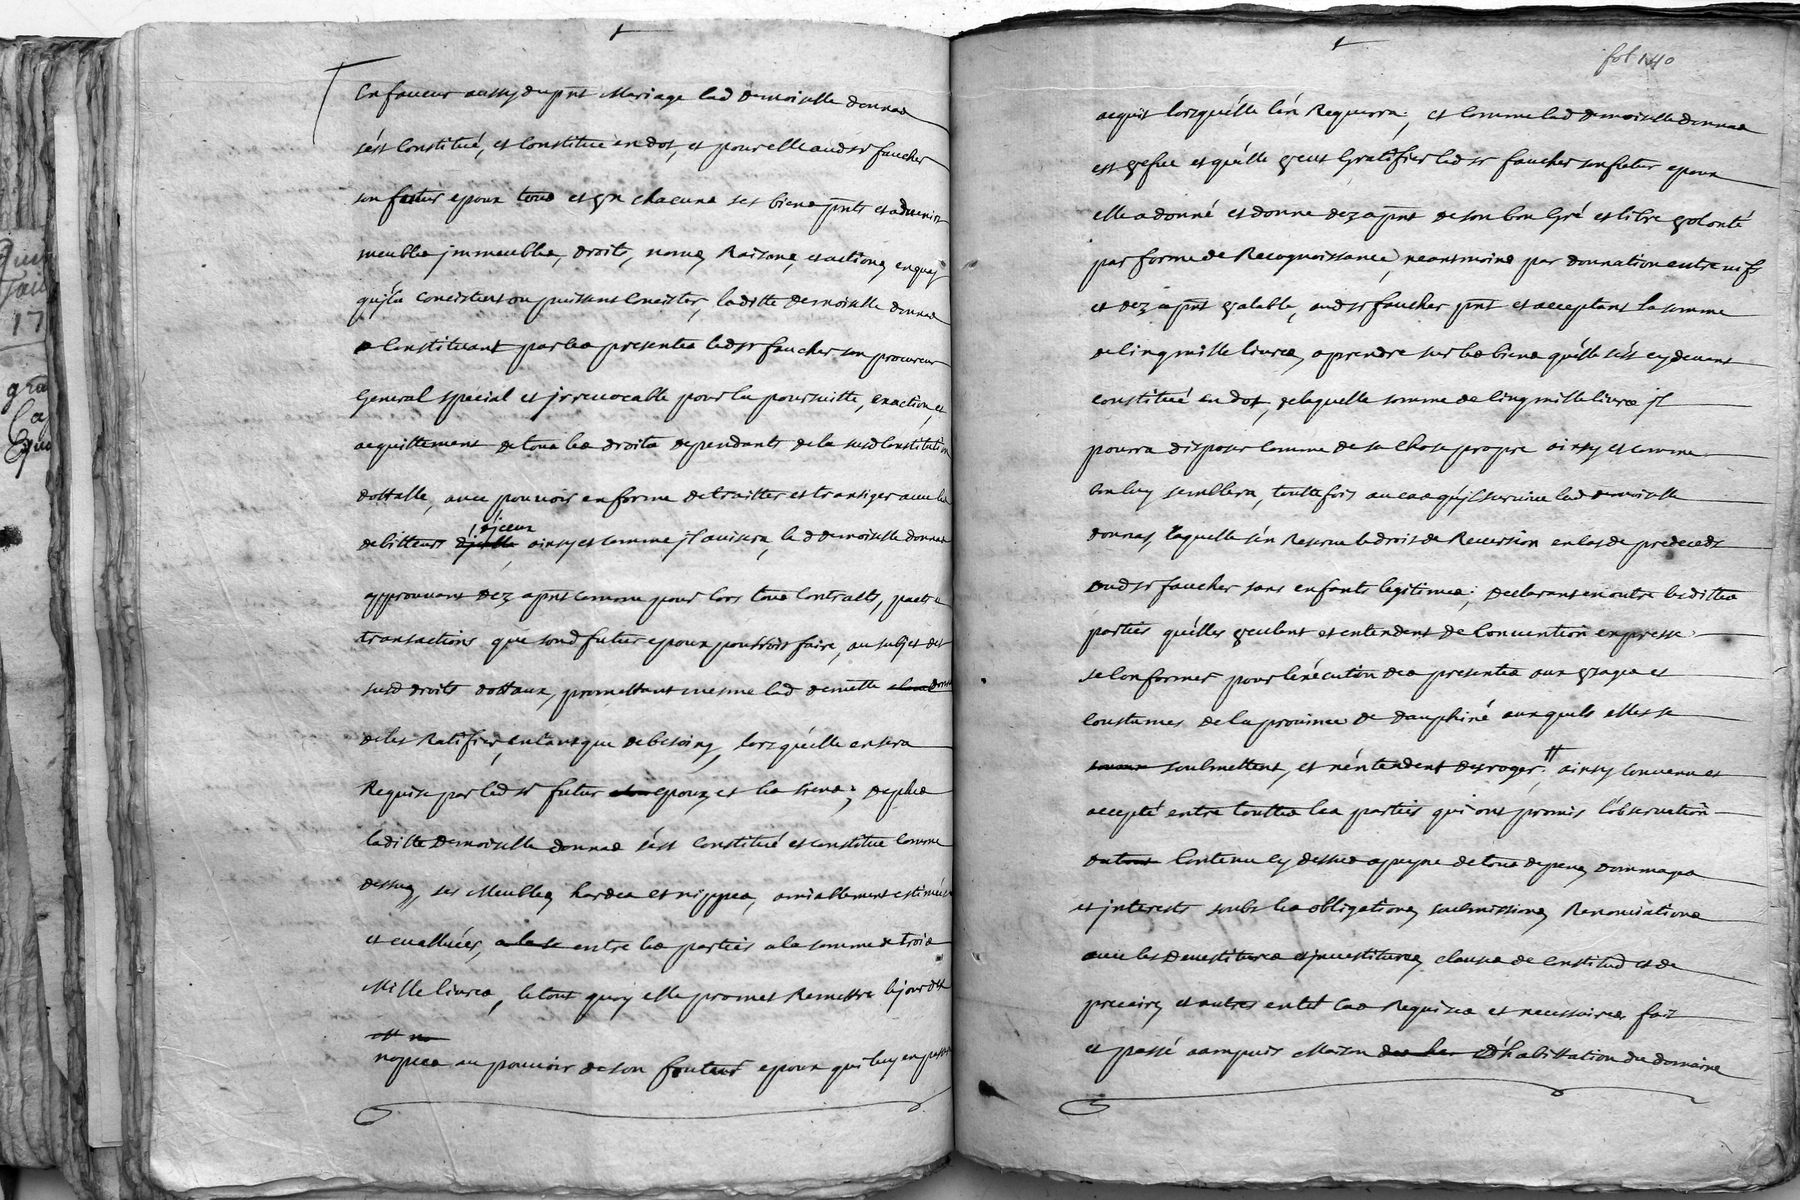 En faveur aussy du pnt Mariage lad demoiselle donnas
s'est Constitué, et Constitue en dot, et pour elle aud sr faucher
son futur epoux tous et un chacuns ses biens pnts et advenir
meubles jmmeubles, droits, noms, Raisons, et actions, en quoy
qu'ils Concistent ou puissent Concister, laditte demoiselle donnas
Constituant par les presentes led sr faucher son procureur
General special et jrrevocable pour la poursuitte, exaction, et
acquittement de tous les droits dependants de la susd Constitution
dottalle, avec pouvoir en forme de traitter et transiger avec les
debitteurs d'jceux ainsy et comme jl avisera, lad demoiselle donnas
approuvant dez apnt comme pour lors tous Contracts, pacts et
transactions que sond futur epoux pourroit faire, au subjet des
susd droits dottaux, promettant mesme lad demelle donnas
de les Ratifier, en tant que de besoing, lors qu'elle en sera
Requise par led sr futur epoux, et les siens; de plus
laditte Demoiselle donnas s'est Constitué et constitue Comme
dessus, ses Meubles, hardes et nippes, amiablement estimées
et evalluées, a la se entre les parties a la somme de trois
Mille livres, le tout quoy elle promet Remettre le jour des
nopces au pouvoir de son futeur epoux qui luy en passera
fol 140
acquit lorsqu'elle l'en Requerra; et Comme lad demoiselle donnas
est vefve et qu'elle veut Gratifier led sr faucher son futur epoux
elle a donné et donne dez apnt de son bon Gré et libre volonté
par forme de Recognoissance, neantmoins par donnation entre vifs
et dez apnt valable, aud sr faucher pnt et acceptant la somme
de Cinq mille livres, a prendre sur les biens qu'elle s'est cy devant
constitué en dot, de laquelle somme de Cinq mille livres jl
pourra disposer Comme de sa Chose propre ainsy et comme
bon luy semblera, touttefois au cas qu'jl survive lad demoiselle
donnas, laquelle s'en Reserve le droit de Reversion en cas de predeceds
dud sr faucher sans enfants legitimes; declarant en outre lesdittes
parties qu'elles veulent et entendent de Convention expresse
se Conformer pour l'execution des presentes aux vzages et
Coustumes de la province de dauphiné auxquels elles se
soubmettent, et n'entendent desroger. ainsy Convenu et
accepté entre touttes les parties qui ont promis l'observation
du tout Contenu cy dessus a peyne de tous depens, dommages
et jnterests soubs les obligations, soubmissions, Renonciations
avec les devestitures et jnvestitures, clause de Constitud et de
precaire, et autres en tel Cas Requises et necessaires fait
et passé aampuis Maison d'habittation du domaine